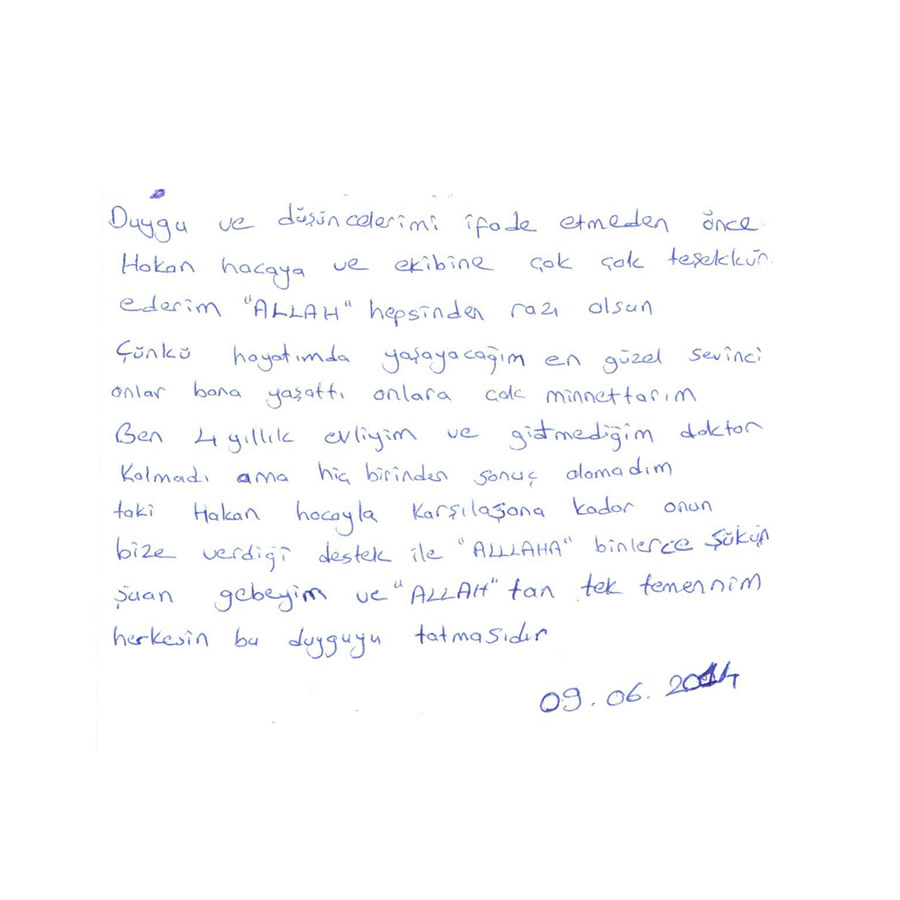 Duygu ve düşüncelerimi ifade etmeden önce
Hakan hocaya ve ekibine çok çok teşekkür
ederim "ALLAH" hepsinden razı olsun
Çünkü hayatımda yaşayacağım en güzel sevinci
onlar bana yaşattı onlara çok minnettarım
Ben 4 yıllık evliyim ve gitmediğim doktor
Kalmadı ama hiç birinden sonuç alamadım
taki Hakan hocayla Karşılaşana kadar onun
bize verdiği destek ile "ALLLAHA" binlerce Şükür
şuan gebeyim ve "ALLAH" tan tek temennim
herkesin bu duyguyu tatmasıdır
09.06.2014